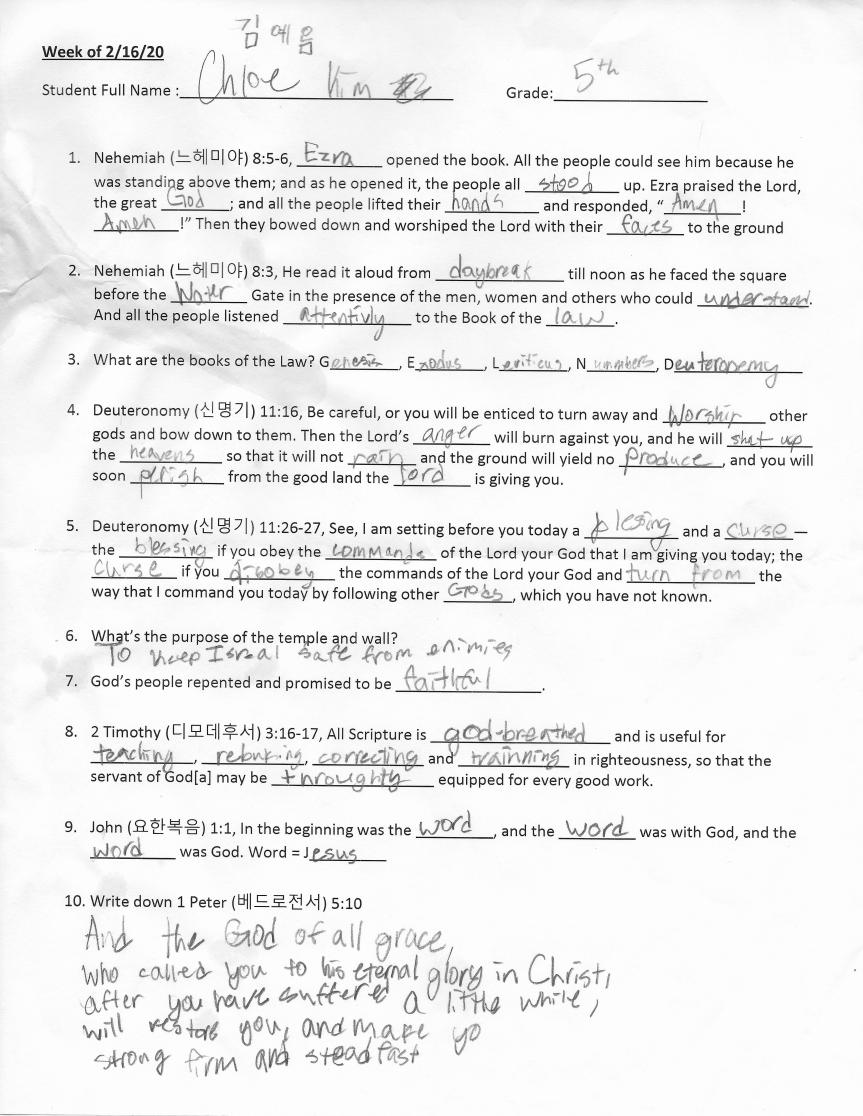 김예음
Week of 2/16/20
Student Full Name : Chloe Kim Grade: 5th
1. Nehemiah (느헤미야) 8:5-6, Ezra opened the book. All the people could see him because he
was standing above them; and as he opened it, the people all stood up. Ezra praised the Lord,
the great God ; and all the people lifted their hands and responded, “ Amen !
Amen !” Then they bowed down and worshiped the Lord with their faces to the ground
2. Nehemiah (느헤미야) 8:3, He read it aloud from daybreak till noon as he faced the square
before the Water Gate in the presence of the men, women and others who could understand.
And all the people listened attentivly to the Book of the law .
3. What are the books of the Law? Genesis , Exodus , Leviticus , Nummbers, Deuteronemy
4. Deuteronomy (신명기) 11:16, Be careful, or you will be enticed to turn away and Worship other
gods and bow down to them. Then the Lord’s anger will burn against you, and he will shut up
the heavens so that it will not rain and the ground will yield no produce , and you will
soon perish from the good land the lord is giving you.
5. Deuteronomy (신명기) 11:26-27, See, I am setting before you today a blessing and a curse —
the blessing if you obey the commands of the Lord your God that I am giving you today; the
curse if you disobey the commands of the Lord your God and turn from the
way that I command you today by following other Gods , which you have not known.
6. What’s the purpose of the temple and wall?
To keep Isreal safe from enimies
7. God’s people repented and promised to be faithful .
8. 2 Timothy (디모데후서) 3:16-17, All Scripture is god-breathed and is useful for
teaching , rebuking, correcting and trainning in righteousness, so that the
servant of God[a] may be throughty equipped for every good work.
9. John (요한복음) 1:1, In the beginning was the word , and the word was with God, and the
word was God. Word = Jesus
10. Write down 1 Peter (베드로전서) 5:10
And the God of all grace,
who called you to his eternal glory in Christ,
after you have suffered a little while,
will restore you, and make yo
strong firm and steadfast